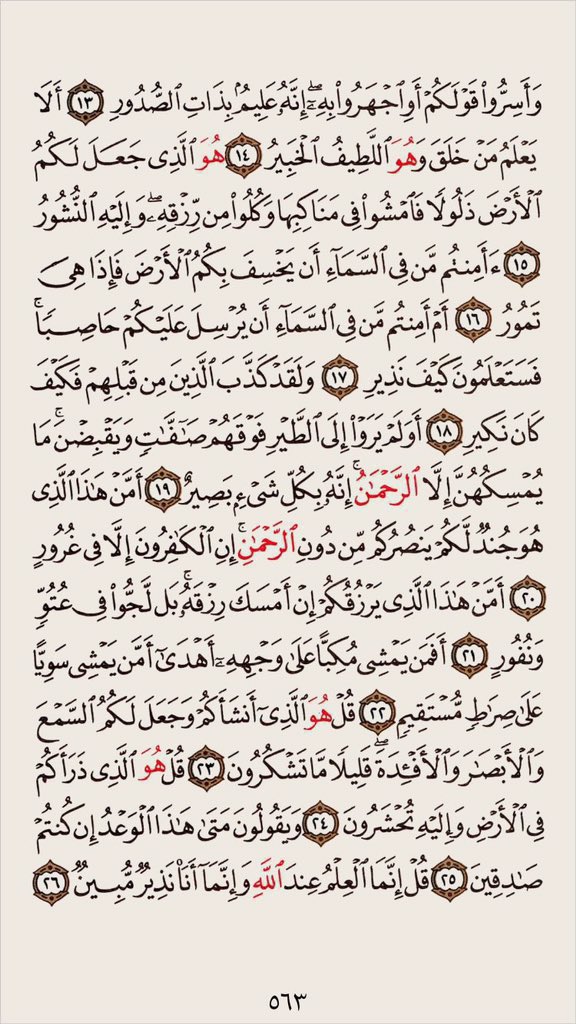 وَأَسِرُّوا۟ قَوْلَكُمْ أَوِ ٱجْهَرُوا۟ بِهِۦٓ ۖ إِنَّهُۥ عَلِيمٌۢ بِذَاتِ ٱلصُّدُورِ ١٣ أَلَا
يَعْلَمُ مَنْ خَلَقَ وَهُوَ ٱللَّطِيفُ ٱلْخَبِيرُ ١٤ هُوَ ٱلَّذِى جَعَلَ لَكُمُ
ٱلْأَرْضَ ذَلُولًا فَٱمْشُوا۟ فِى مَنَاكِبِهَا وَكُلُوا۟ مِن رِّزْقِهِۦ ۖ وَإِلَيْهِ ٱلنُّشُورُ
١٥ ءَأَمِنتُم مَّن فِى ٱلسَّمَآءِ أَن يَخْسِفَ بِكُمُ ٱلْأَرْضَ فَإِذَا هِىَ
تَمُورُ ١٦ أَمْ أَمِنتُم مَّن فِى ٱلسَّمَآءِ أَن يُرْسِلَ عَلَيْكُمْ حَاصِبًا ۖ
فَسَتَعْلَمُونَ كَيْفَ نَذِيرِ ١٧ وَلَقَدْ كَذَّبَ ٱلَّذِينَ مِن قَبْلِهِمْ فَكَيْفَ
كَانَ نَكِيرِ ١٨ أَوَلَمْ يَرَوْا۟ إِلَى ٱلطَّيْرِ فَوْقَهُمْ صَـٰٓفَّـٰتٍ وَيَقْبِضْنَ ۚ مَا
يُمْسِكُهُنَّ إِلَّا ٱلرَّحْمَـٰنُ ۚ إِنَّهُۥ بِكُلِّ شَىْءٍۭ بَصِيرٌ ١٩ أَمَّنْ هَـٰذَا ٱلَّذِى
هُوَ جُندٌ لَّكُمْ يَنصُرُكُم مِّن دُونِ ٱلرَّحْمَـٰنِ ۚ إِنِ ٱلْكَـٰفِرُونَ إِلَّا فِى غُرُورٍ
٢٠ أَمَّنْ هَـٰذَا ٱلَّذِى يَرْزُقُكُمْ إِنْ أَمْسَكَ رِزْقَهُۥ ۚ بَل لَّجُّوا۟ فِى عُتُوٍّ
وَنُفُورٍ ٢١ أَفَمَن يَمْشِى مُكِبًّا عَلَىٰ وَجْهِهِۦٓ أَهْدَىٰٓ أَمَّن يَمْشِى سَوِيًّا
عَلَىٰ صِرَٰطٍ مُّسْتَقِيمٍ ٢٢ قُلْ هُوَ ٱلَّذِىٓ أَنشَأَكُمْ وَجَعَلَ لَكُمُ ٱلسَّمْعَ
وَٱلْأَبْصَـٰرَ وَٱلْأَفْـِٔدَةَ ۖ قَلِيلًا مَّا تَشْكُرُونَ ٢٣ قُلْ هُوَ ٱلَّذِى ذَرَأَكُمْ
فِى ٱلْأَرْضِ وَإِلَيْهِ تُحْشَرُونَ ٢٤ وَيَقُولُونَ مَتَىٰ هَـٰذَا ٱلْوَعْدُ إِن كُنتُمْ
صَـٰدِقِينَ ٢٥ قُلْ إِنَّمَا ٱلْعِلْمُ عِندَ ٱللَّهِ وَإِنَّمَآ أَنَا۠ نَذِيرٌ مُّبِينٌ ٢٦
٥٦٣